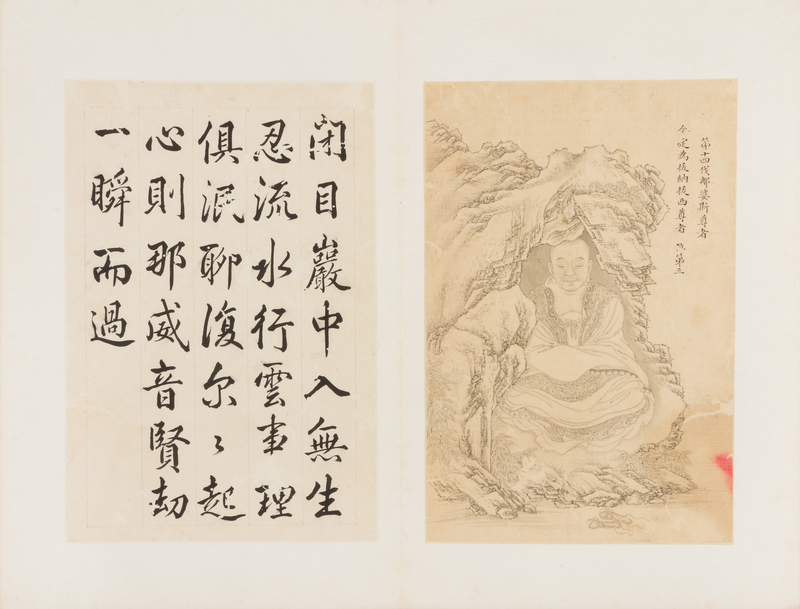 第十四伐那婆斯尊者
今定為拔納拔西尊者 位第三
閉目巖中入無生
忍流水行雲事理
俱泯聊復尔〻起
心則那威音賢劫
一瞬而過